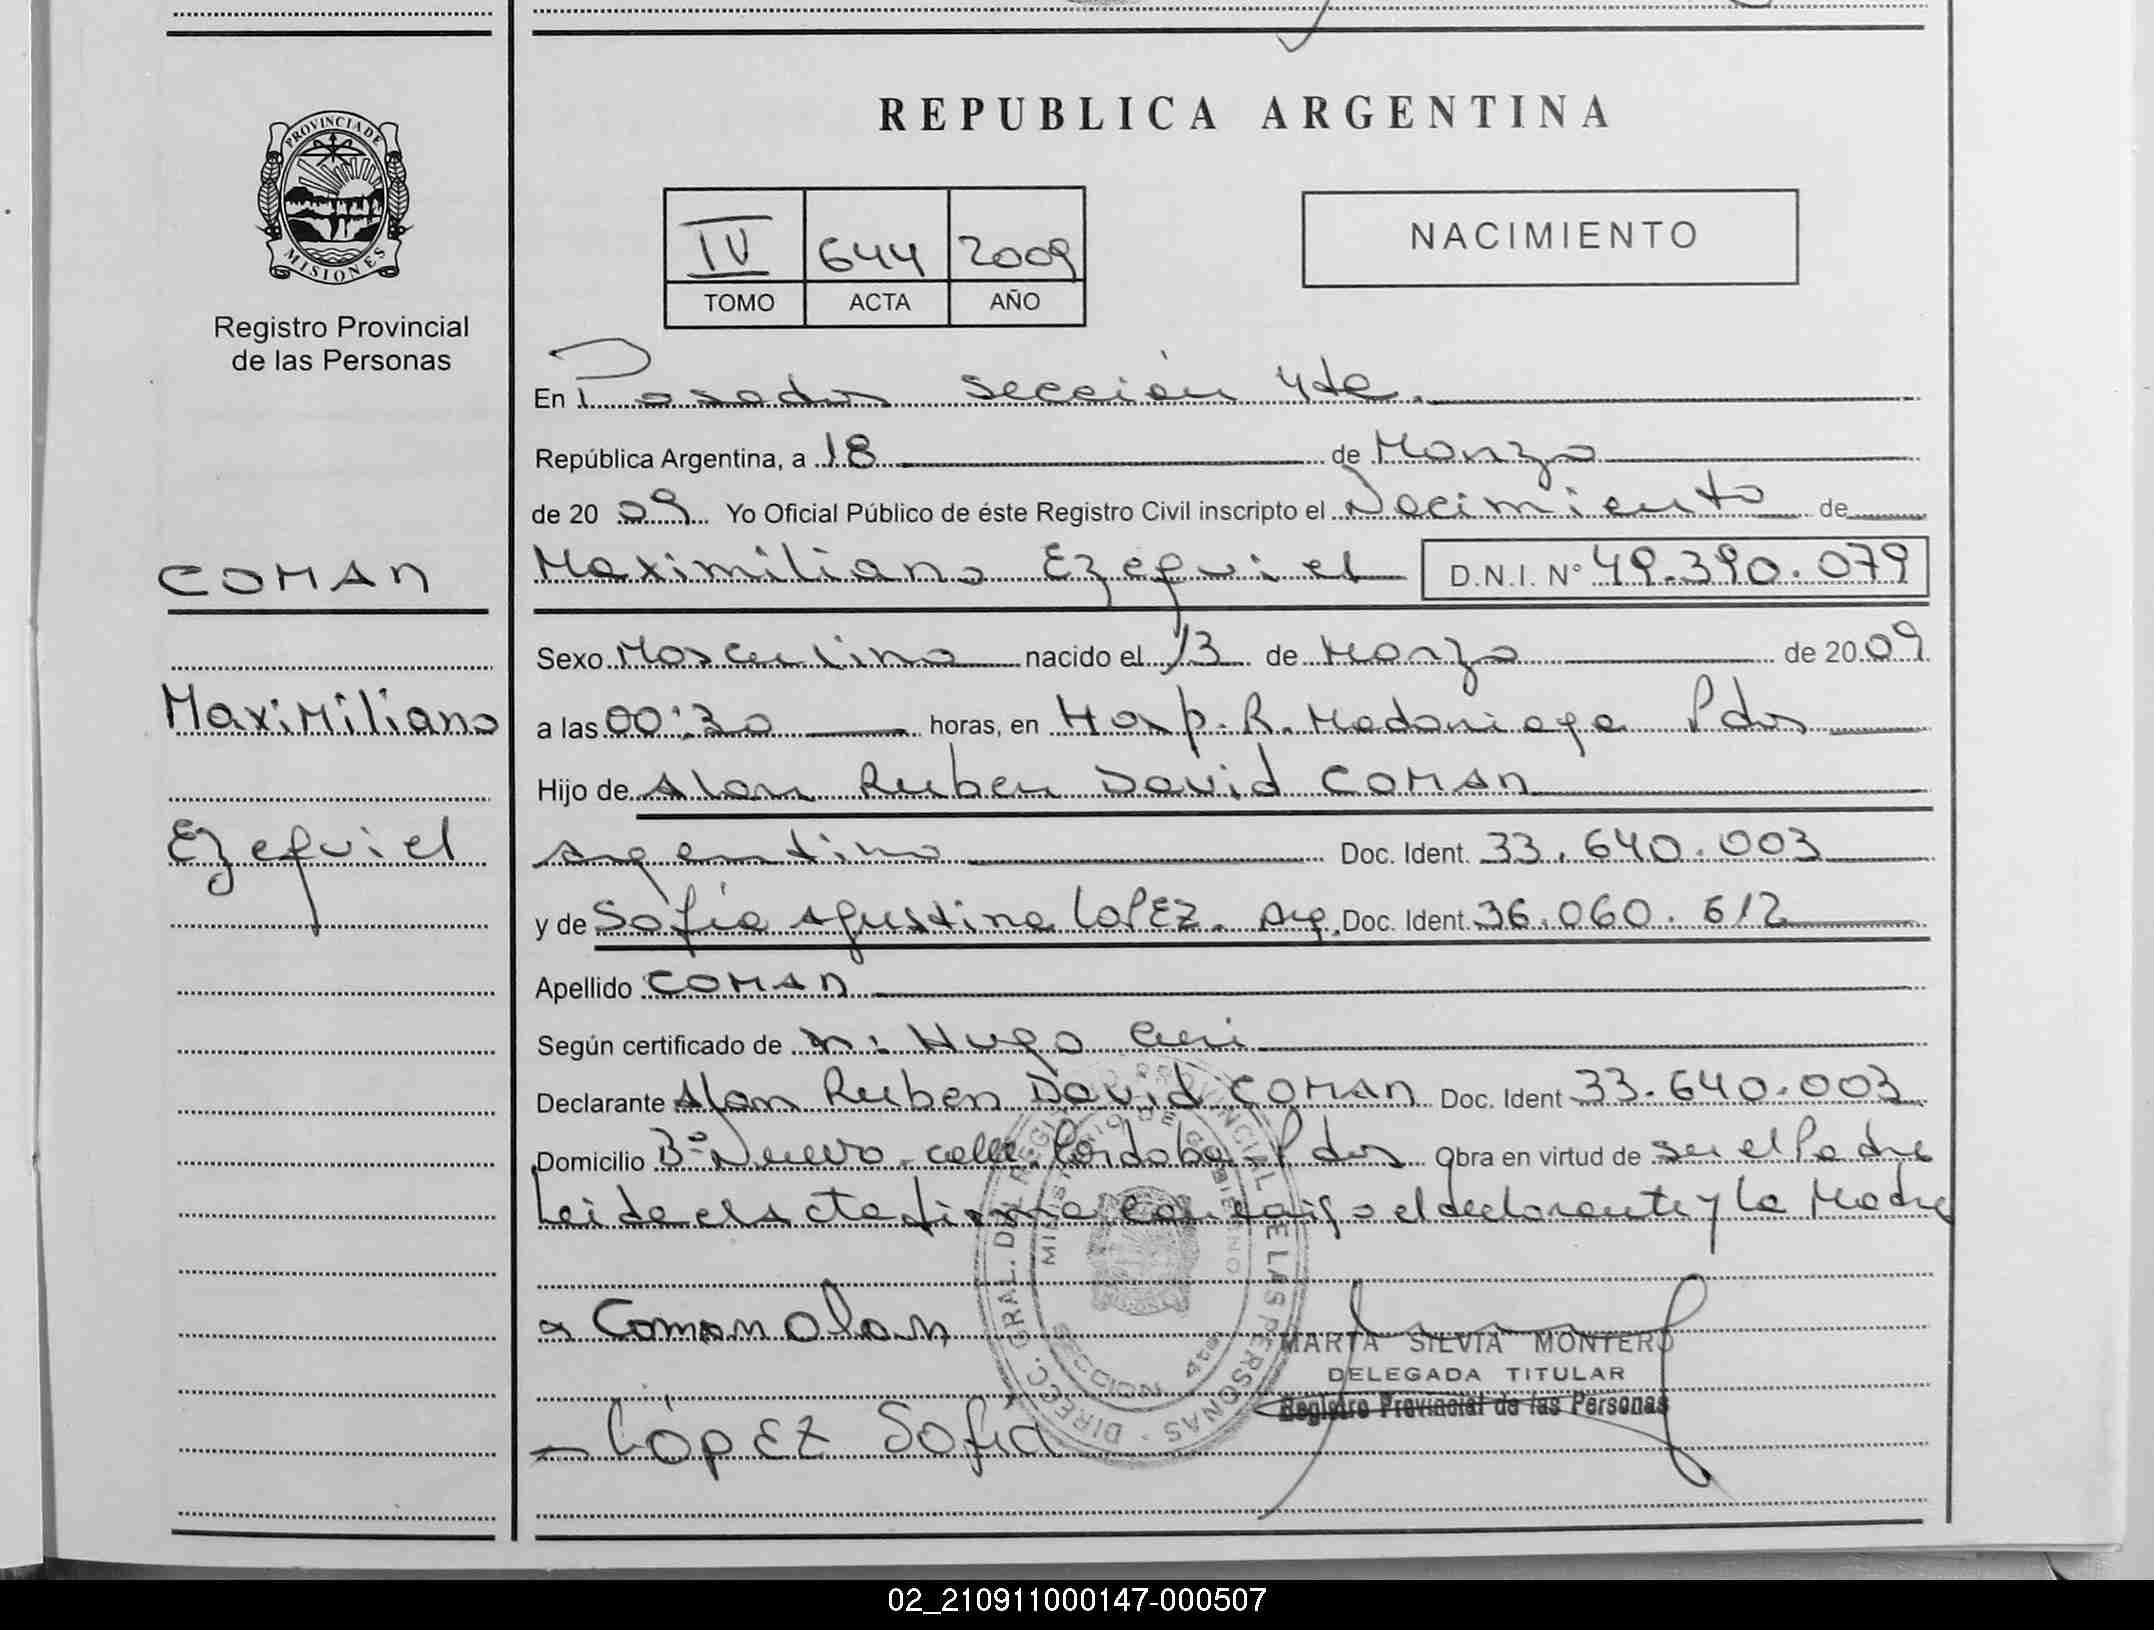 REPUBLICA ARGENTINA
PROVINCIA DE
MISIONES
Registro Provincial
de las Personas
IV 644 2009
TOMO ACTA AÑO
NACIMIENTO
En Posadas Sección 4ta.
República Argentina, a 18 de Marzo
de 2009 Yo Oficial Público de éste Registro Civil inscripto el Nacimiento de
COMAN
Maximiliano Ezequiel D.N.I. N° 49.390.079
Sexo Masculino nacido el 13 de Marzo de 2009
Maximiliano
a las 00:30 horas, en Hosp. R. Madariaga Pdas
Hijo de Alan Ruben David COMAN
Ezequiel
Argentino Doc. Ident. 33.640.003
y de Sofía Agustina LOPEZ. Arg. Doc. Ident. 36.060.612
Apellido COMAN
Según certificado de Hugo
Declarante Alan Ruben David COMAN Doc. Ident 33.640.003
Domicilio B° Nuevo - calle Córdoba - Pdas Obra en virtud de ser el Padre
Leida el acta firma conmigo el declarante y la Madre
Coman Alan
LÓPEZ Sofía
DIRECC. GRAL. DEL REGISTRO PROVINCIAL DE LAS PERSONAS
MINISTERIO DE GOBIERNO
SECCION 4ta
MARTA SILVIA MONTERO
DELEGADA TITULAR
Registro Provincial de las Personas
02_210911000147-000507